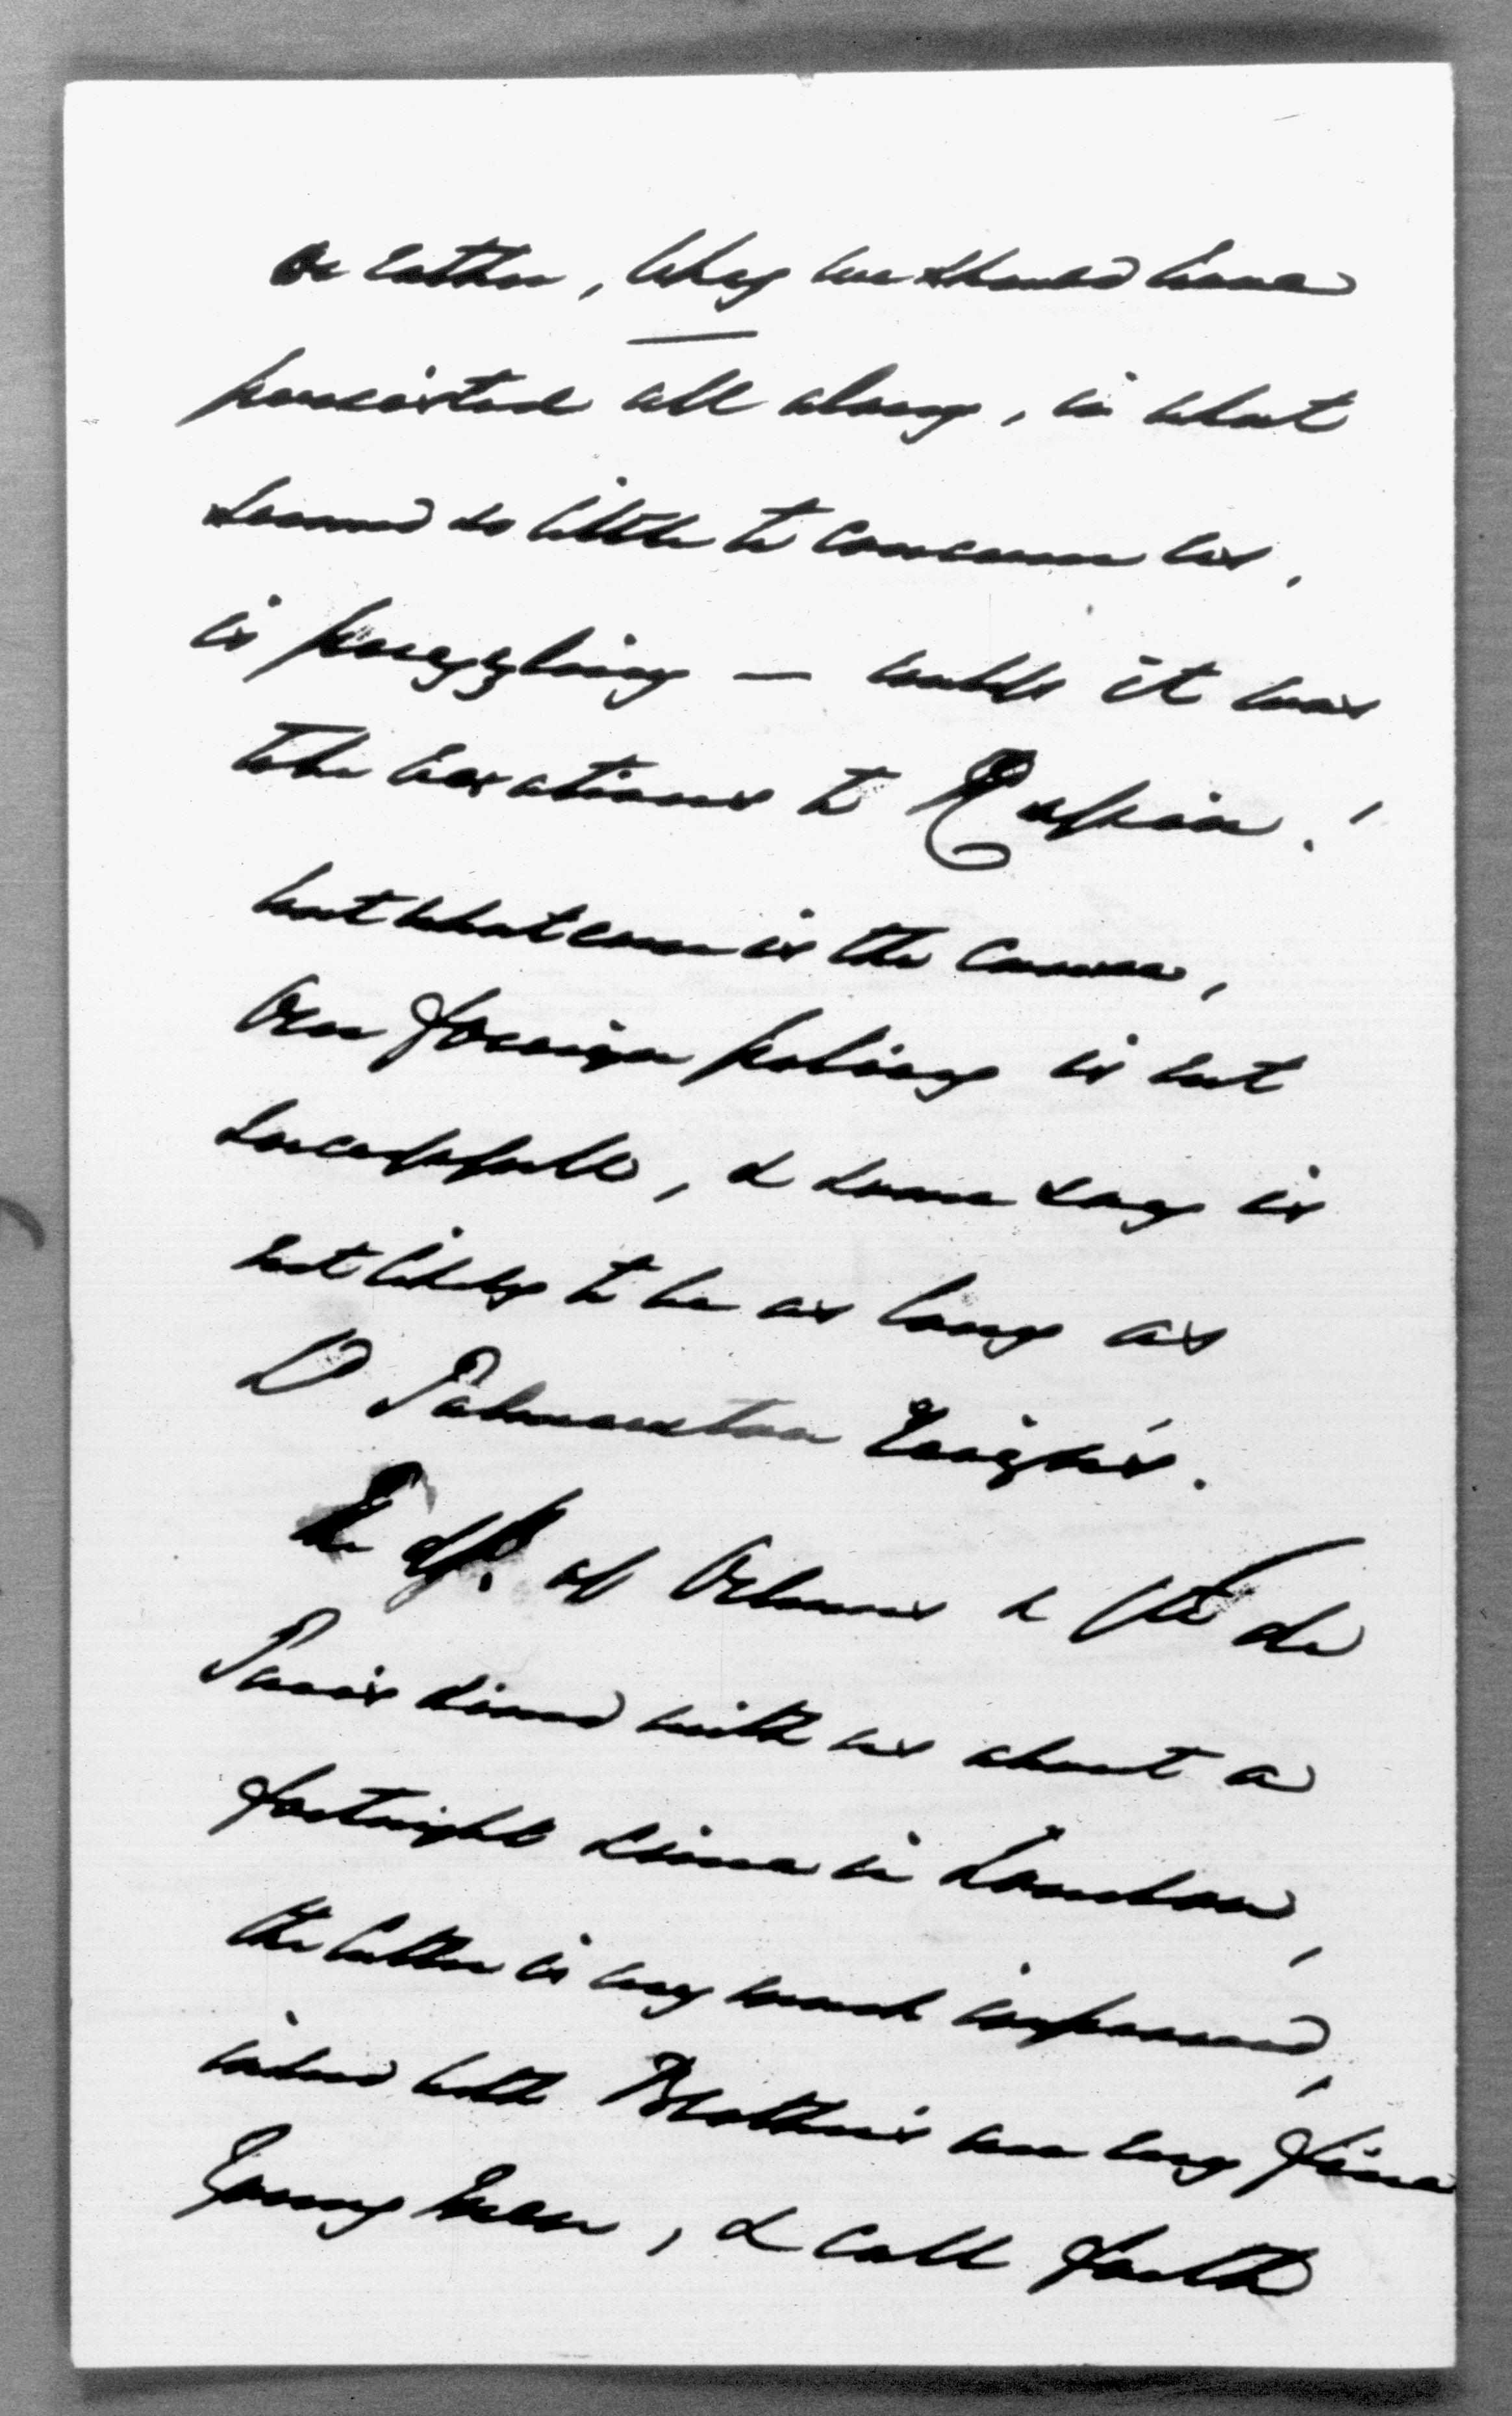 or rather, why we should have
persisted all along, in what
seemed so little to concern us,
is puzzling — unless it was
to be vexations to Russia!
but whatever is the cause,
Our foreign policy is not
successfull, & some say is
not likely to be as long as
Ld Palmerston reigns.
The Dss. of Orleans & Cte de
Paris dined with us about a
fortnight since in London,
the latter is very much improved,
indeed both Brothers are very fine
Young Men, & call forth